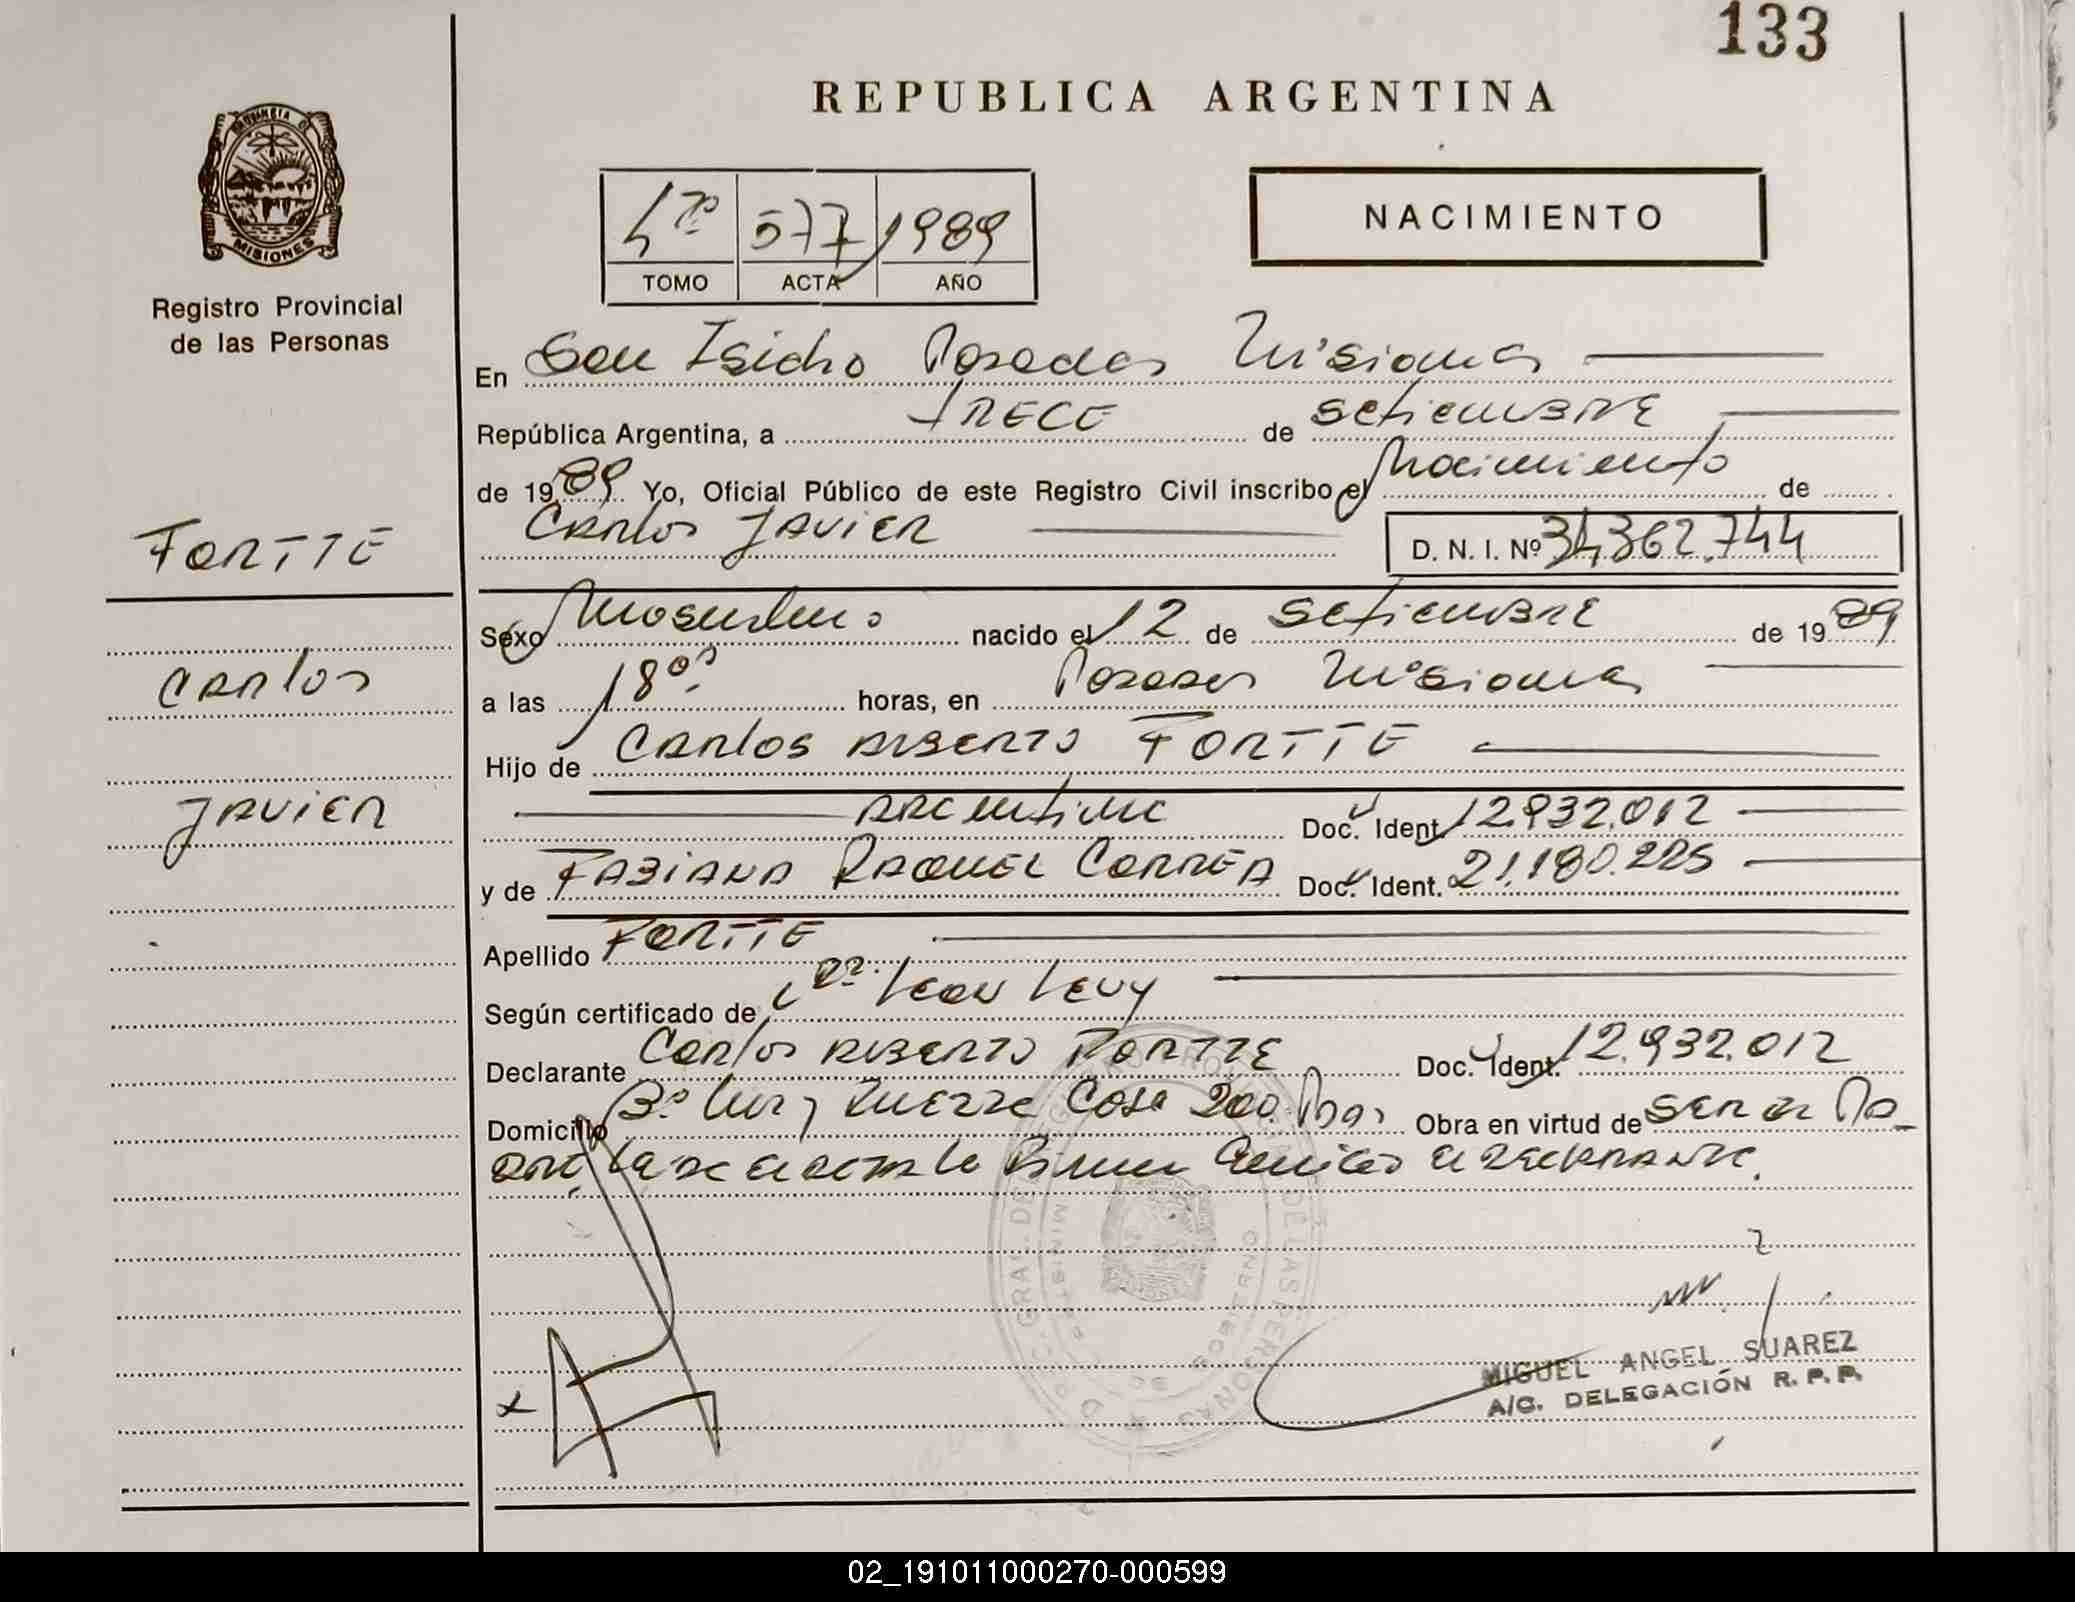 133
REPUBLICA ARGENTINA
PROVINCIA DE
MISIONES
Registro Provincial
de las Personas
4to 577 1989
TOMO ACTA AÑO
NACIMIENTO
En San Isidro Posadas Misiones
República Argentina, a TRECE de setiembre
de 1989 Yo, Oficial Público de este Registro Civil inscribo el Nacimiento de
Carlos Javier
D. N. I. Nº 34362.744
FORTTE
Carlos
Javier
Sexo Masculino nacido el 12 de setiembre de 1989
a las 18 00 horas, en Posadas Misiones
Hijo de Carlos Alberto FORTTE
Argentino Doc. Ident. 12.932.012
y de Fabiana Raquel Correa Doc. Ident. 21.180.225
Apellido FORTTE
Según certificado de Dr. Leon Levy
Declarante Carlos Alberto FORTTE Doc. Ident. 12.932.012
Domicilio Bº Luz y Fuerza Casa 200. Obra en virtud de ser el Pa-
dre, Leida el acta la firma el declarante.
MIGUEL ANGEL SUAREZ
A/C. DELEGACIÓN R. P. P.
02_191011000270-000599